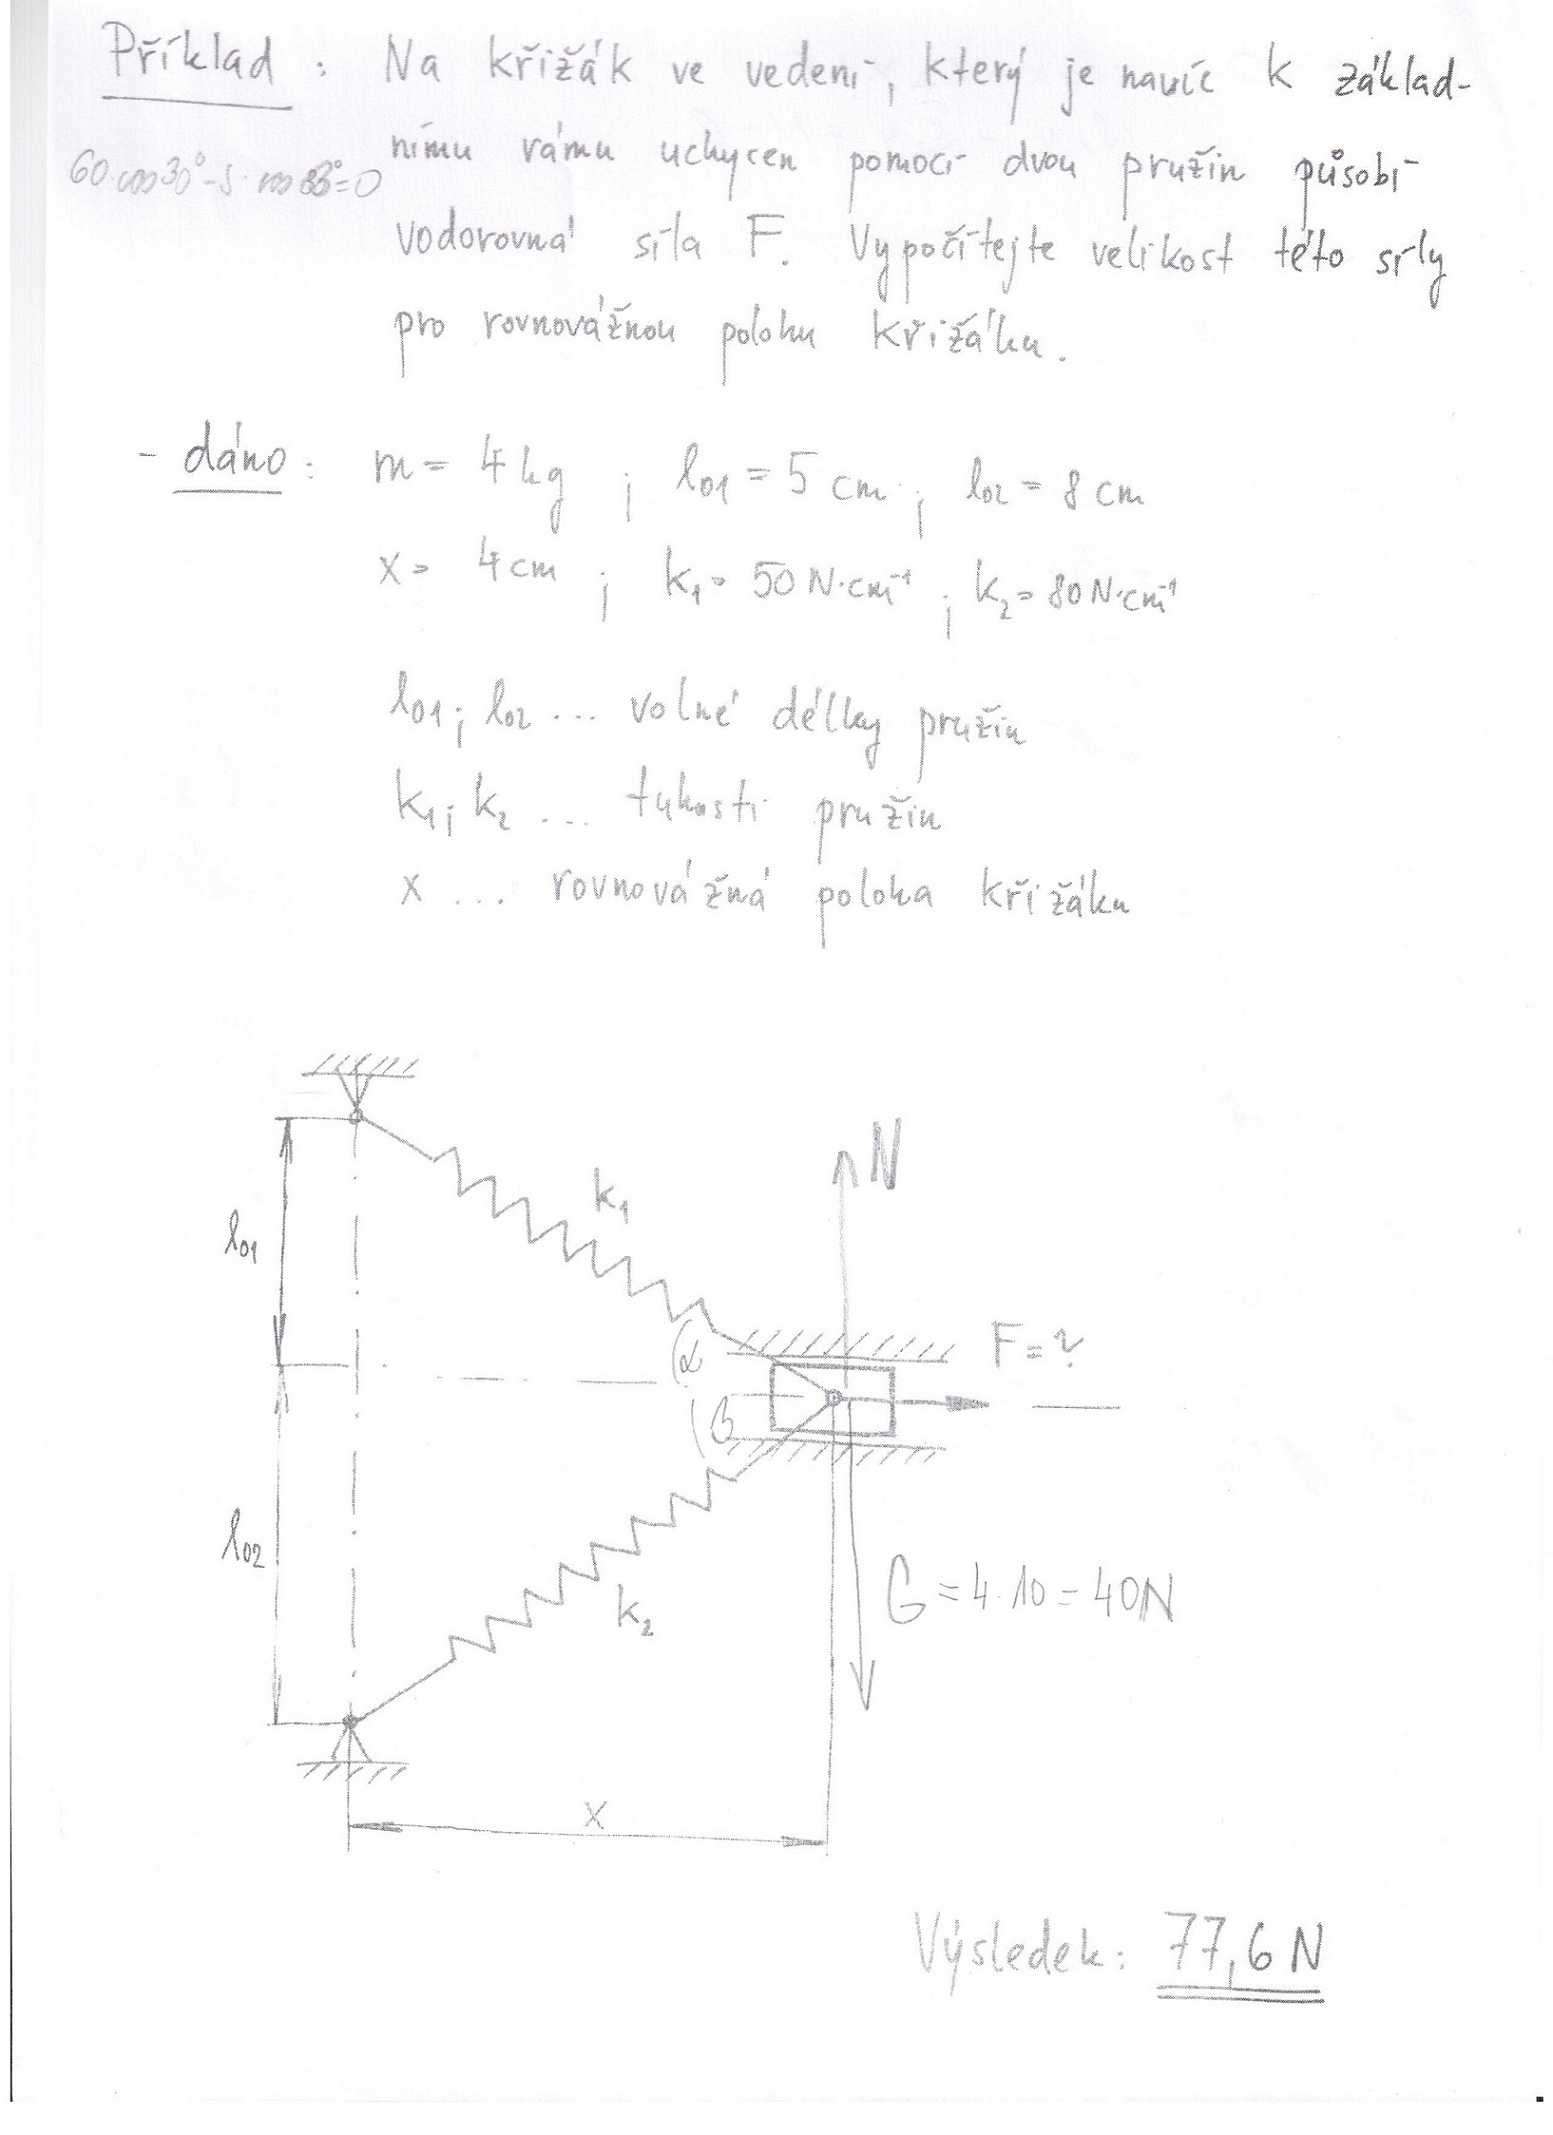 Příklad : Na křižák ve vedení, který je navíc k základ-
nímu rámu uchycen pomocí dvou pružin působí
60·cos30°-S·cos 83°=0
vodorovná síla F. Vypočítejte velikost této síly
pro rovnovážnou polohu křižáku.
- dáno : m = 4 kg ; l01 = 5 cm ; l02 = 8 cm
x = 4 cm ; k1 = 50 N·cm⁻¹ ; k2 = 80 N·cm⁻¹
l01 ; l02 ... volné délky pružin
k1 ; k2 ... tuhosti pružin
x ... rovnovážná poloha křižáku
N
k1
l01
F = ?
α
β
l02
k2
G = 4·10 = 40N
x
Výsledek : 77,6 N